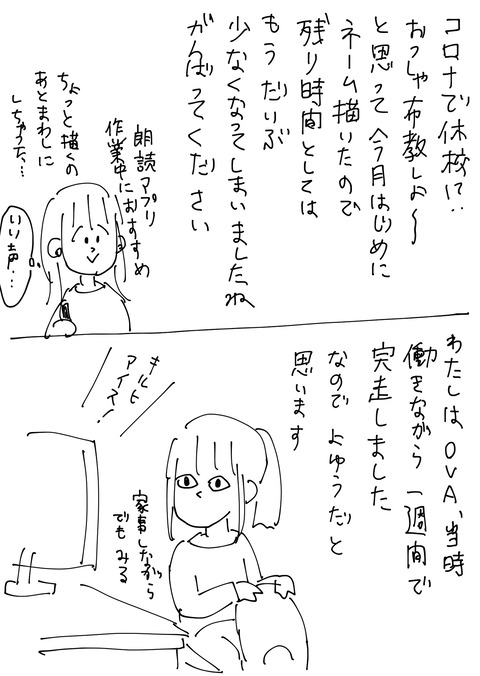 コロナで休校に!?
おっしゃ布教しよ〜
と思って今月はじめに
ネーム描いたので
残り時間としては
もうだいぶ
少なくなってしまいましたね
がんばってください
朗読アプリ
作業中におすすめ
ちょっと描くの
あとまわしに
しちゃった…
いい声…
わたしはOVA、当時
働きながら一週間で
完走しました
なのでよゆうだと
思います
キルヒ
アイス!
家事しながら
でもみる